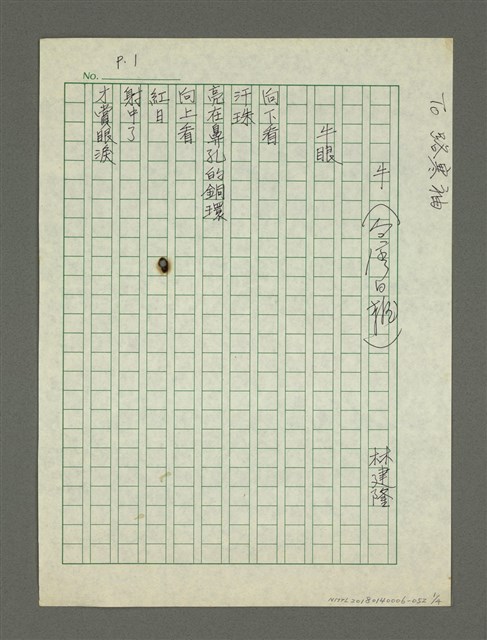 P.1
No.
To 路寒袖
牛（台灣日報）
林建隆
牛眼
向下看
汗珠
亮在鼻孔的銅環
向上看
紅日
射中了
才嘗眼淚
NMTL20180140006-052 1/4